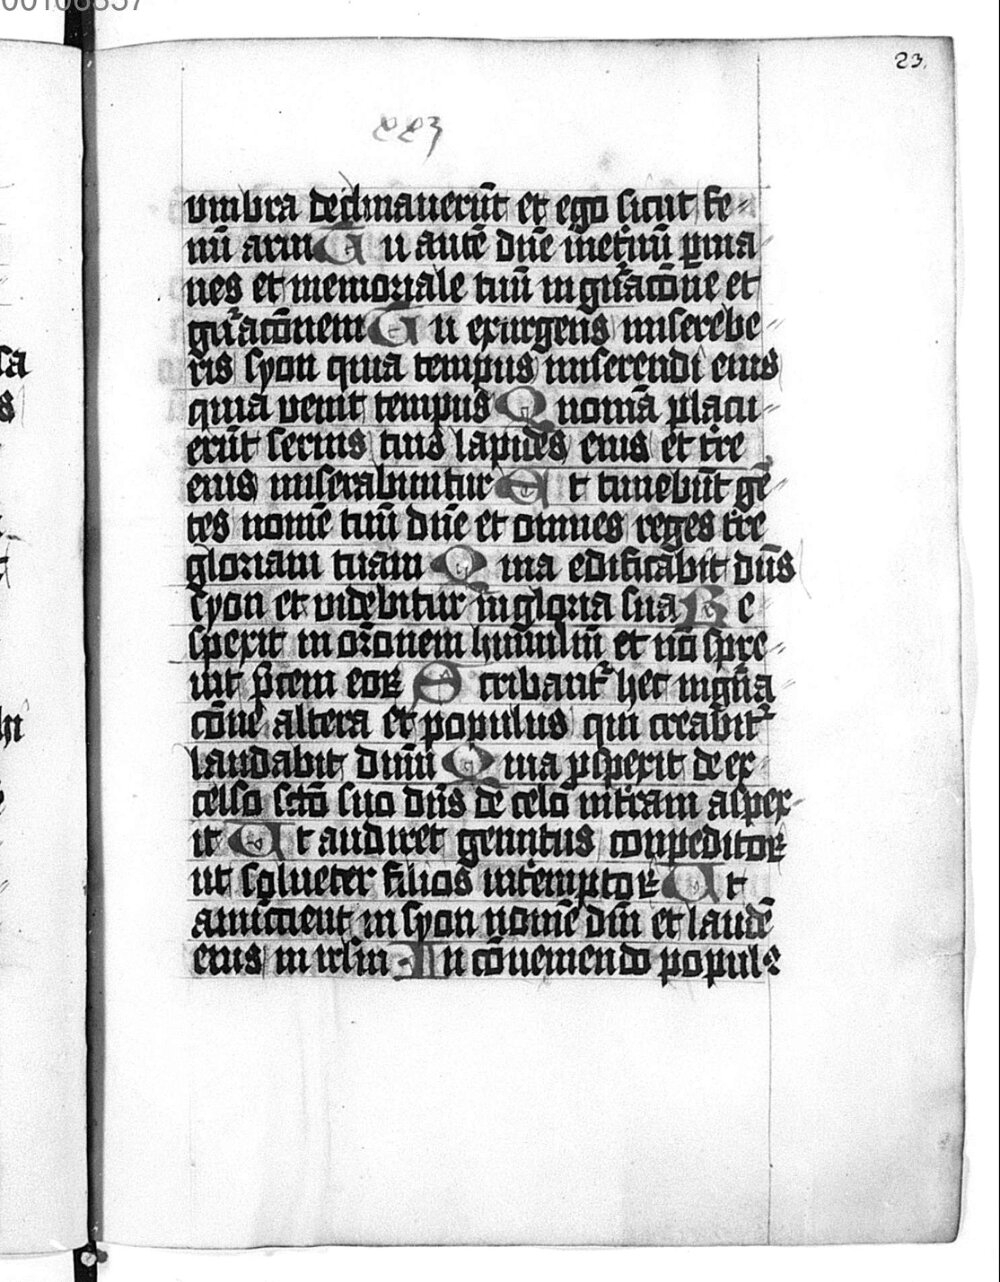 00106857
23.
223
vmbra declinauerūt et ego sicut fe-
nū aruiTu autē dn̄e inet̄nū ꝑma
nes et memoriale tuū in gn̄acōne et
gn̄acōnemTu exurgens miserebe
ris syon quia tempus miserendi eius
quia venit tempusQ̄nomā placu
erūt seruis tuis lapides eius et tr̄e
eius miserabunturEt timebūt gē
tes nomē tuū dn̄e et omnes reges tr̄e
gloriam tuam Quia edificabit dn̄s
syon et videbitur in gloria suaRe
spexit in or̄onem humiliū et nō spre
uit p̄cem eoꝝ Scribant᷑ hec in gn̄a
cōne altera et populus qui creabit᷑
laudabit dnm̄ Quia ꝓspexit de ex
celso scō suo dn̄s de celo in terram aspex-
it Ut audiret gemitus conpeditoꝝ
ut solueret filios intemptoꝝUt
anūctient in syon nomē dn̄i et laudē
eius in irl̄m In cōueniendo popul᷒
sa
s
hi